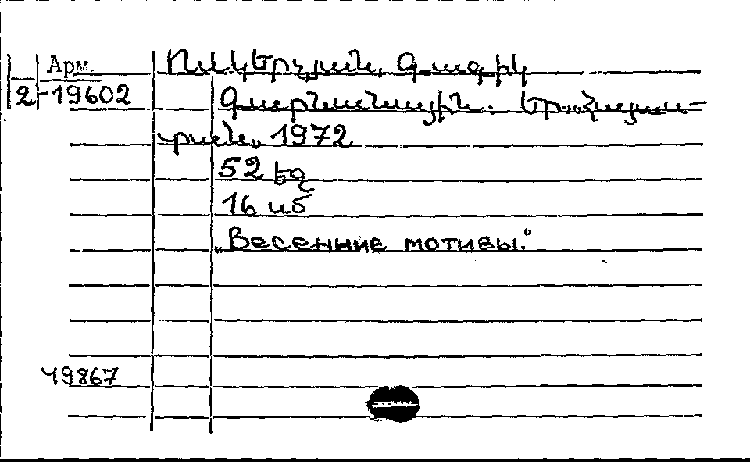 Арм.
2-19602
Ոսկերչյան, Գագիկ
Գարնանային. Եր., Հայաս-
տան, 1972
52 էջ
16 սմ
„Весенние мотивы."
49867